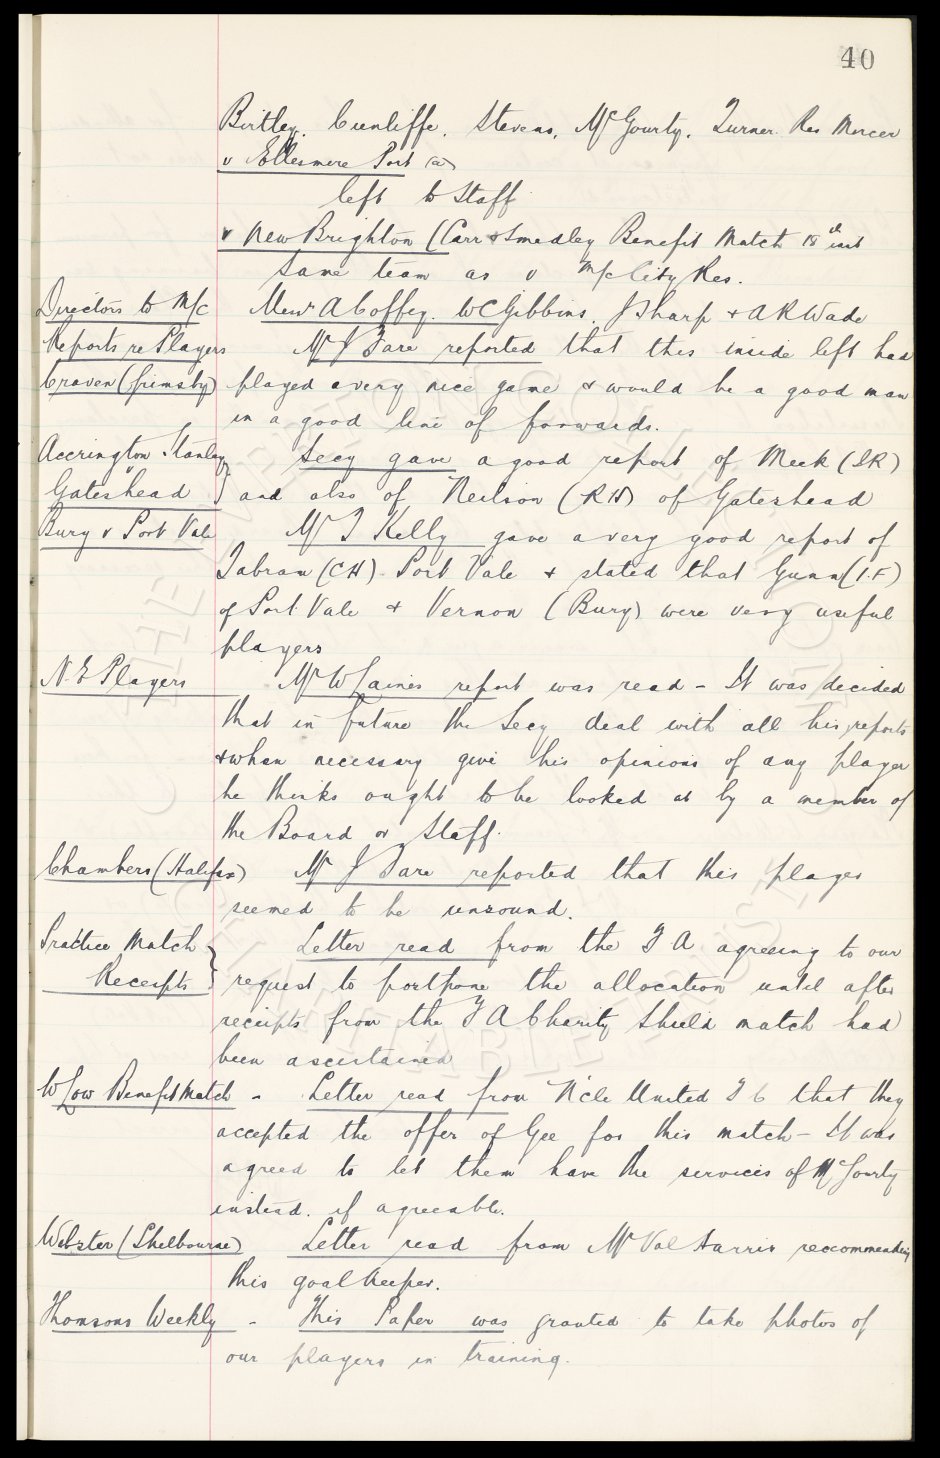 40
Birtley, Cunliffe, Stevens, McGourty, Turner. Res Mercer
v Ellesmere Port (a)
left to Staff
v New Brighton (Carr & Smedley Benefit Match 18th inst
Same team as v M/c City Res.
Directors to M/c Messrs A Coffey. W C Gibbins. J Sharp & A R Wade
Reports re Players Mr J Fare reported that this inside left had
Craven (Grimsby) played a very nice game & would be a good man
in a good line of forwards.
Accrington Stanley Secy gave a good report of Meek (IR)
Gateshead } and also of Neilson (RH) of Gateshead
Bury v Port Vale Mr T Kelly gave a very good report of
Tabram (CH) Port Vale & stated that Gunn (I.F)
of Port Vale & Vernon (Bury) were very useful
players
N.E Players Mr W Caines report was read - It was decided
that in future the Secy deal with all his reports
& when necessary give his opinions of any player
he thinks ought to be looked at by a member of
the Board or Staff.
Chambers (Halifax) Mr J Fare reported that this player
seemed to be unsound.
Practice Match } Letter read from the F A agreeing to our
Receipts request to postpone the allocation until after
receipts from the F A Charity Shield match had
been ascertained
W Low Benefit Match - Letter read from N'cle United F C that they
accepted the offer of Gee for this match - It was
agreed to let them have the services of McGourty
instead. if agreeable.
Webster (Shelbourne) Letter read from Mr Val Harris reccommending
this goalkeeper.
Thomsons Weekly - This Paper was granted to take photos of
our players in training.
THE EVERTON COLLECTION CHARITABLE TRUST